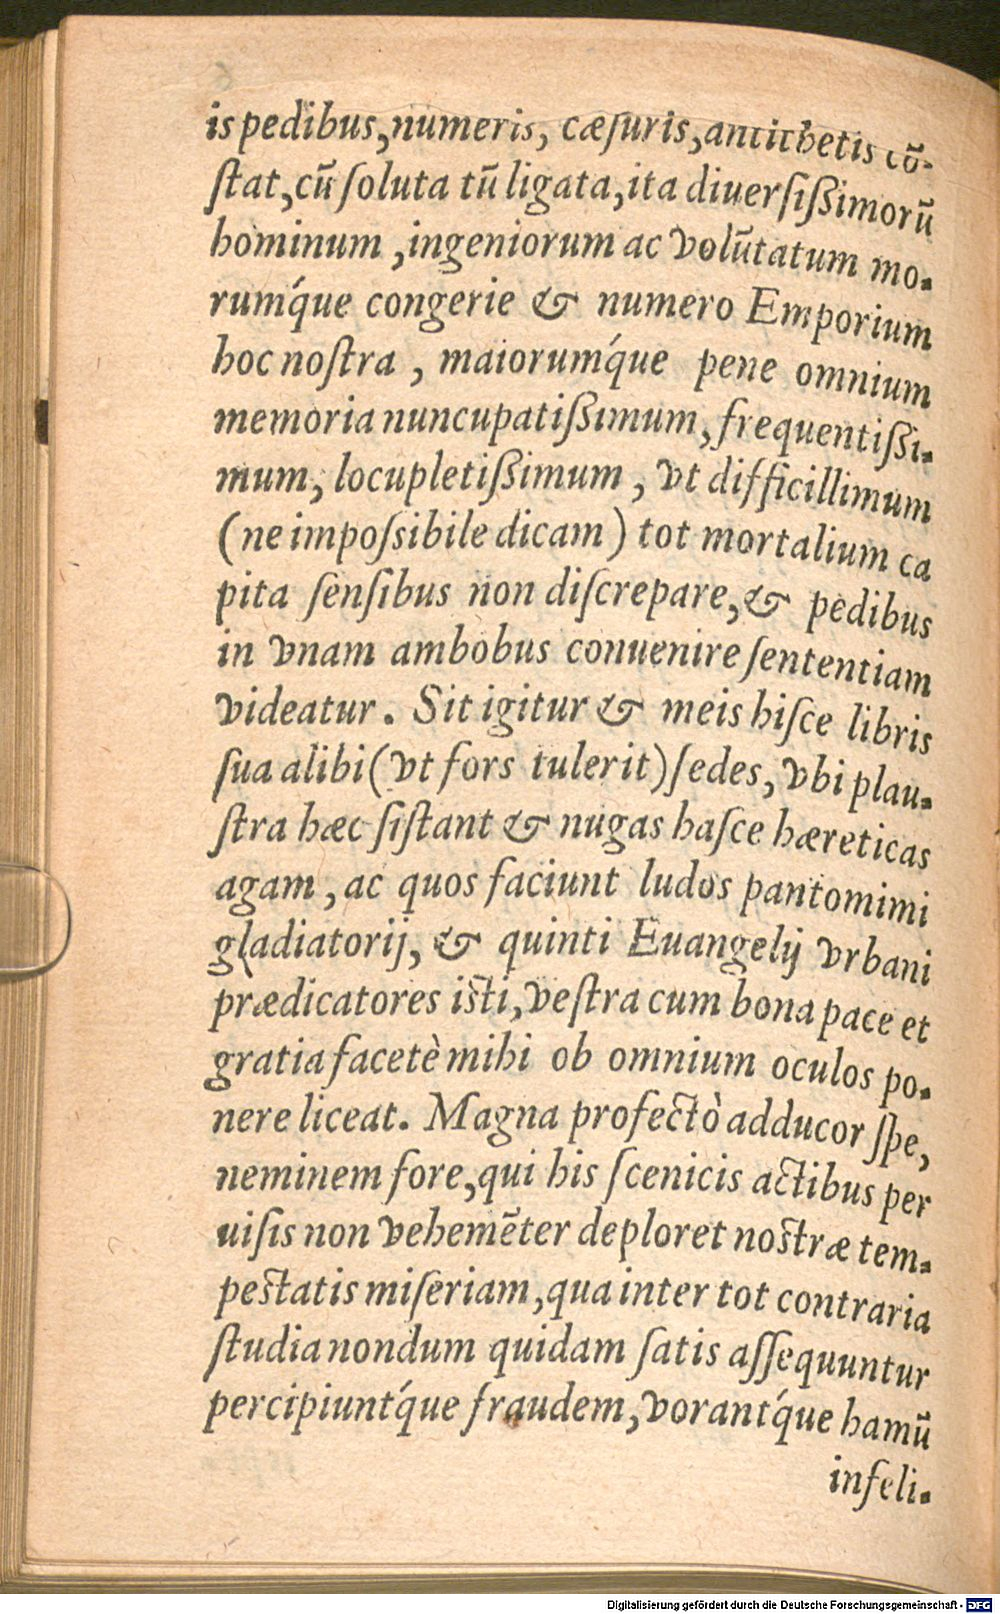 is pedibus, numeris, cæſuris, antithetis cō-
ſtat, cū ſoluta tū ligata, ita diuerſiſsimorū
hominum, ingeniorum ac volūtatum mo-
rumq́ue congerie & numero Emporium
hoc noſtra, maiorumq́ue pene omnium
memoria nuncupatiſsimum, frequentiſsi-
mum, locupletiſsimum, vt difficillimum
(ne impoſsibile dicam) tot mortalium ca
pita ſenſibus non diſcrepare, & pedibus
in vnam ambobus conuenire ſententiam
videatur. Sit igitur & meis hiſce libris
ſua alibi (vt fors tulerit) ſedes, vbi plau-
ſtra hæc ſiſtant & nugas haſce hæreticas
agam, ac quos faciunt ludos pantomimi
gladiatorij, & quinti Euangelij vrbani
prædicatores iſti, veſtra cum bona pace et
gratia facetè mihi ob omnium oculos po-
nere liceat. Magna profectò adducor ſpe,
neminem fore, qui his ſcenicis actibus per
uiſis non vehemēter deploret noſtræ tem-
peſtatis miſeriam, qua inter tot contraria
ſtudia nondum quidam ſatis aſſequuntur
percipiuntq́ue fraudem, vorantq́ue hamū
infeli-
Digitalisierung gefördert durch die Deutsche Forschungsgemeinschaft - DFG